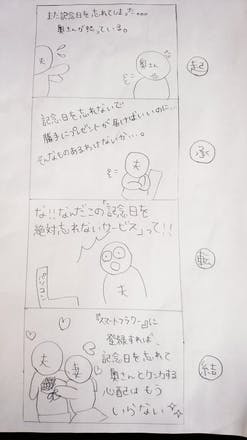 また記念日を忘れてしまった…。
奥さんが怒っている。
夫
奥さん
起
記念日を忘れないで
勝手にプレゼントが届けばいいのに…
そんなものあるわけないか…。
夫
承
な!!なんだこの「記念日を
絶対忘れないサービス」って!!
パソコン
夫
転
『スマートフラワー』に
登録すれば、
記念日を忘れて
奥さんとケンカする
心配はもう
いらない
夫
妻
結